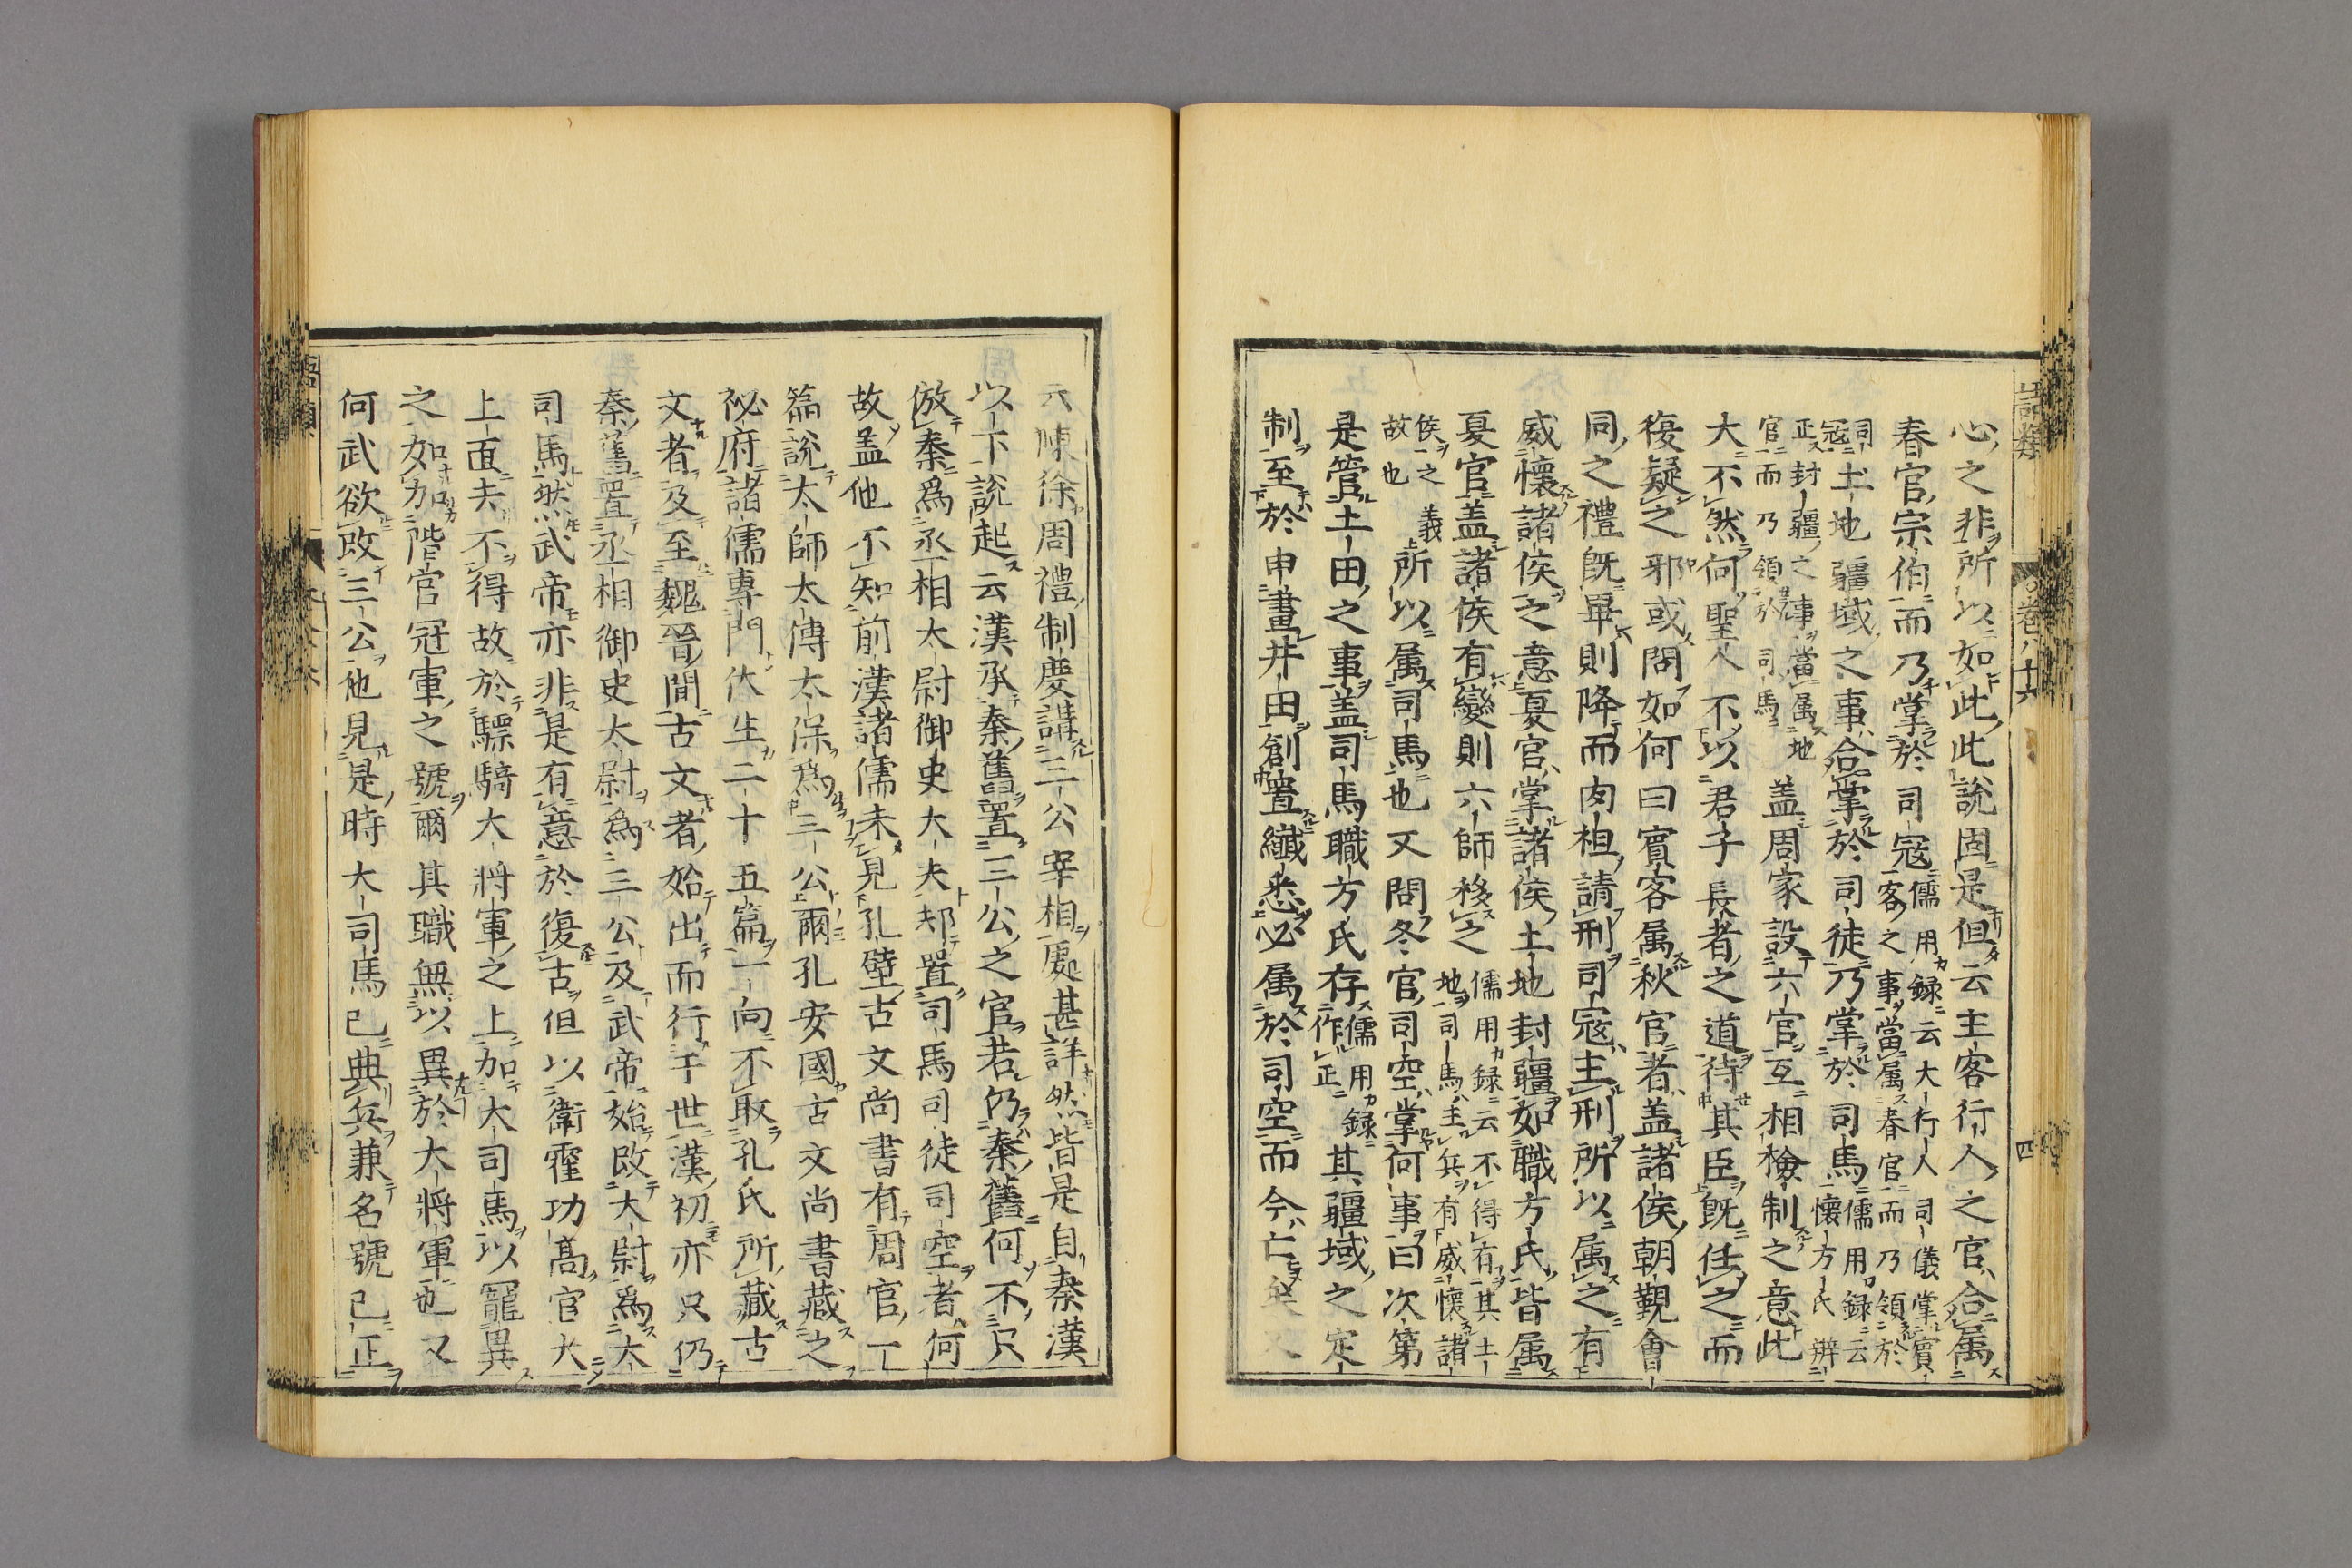 語類 卷八十六 四
心之非所以如此此說固是但云主客行人之官合属
春官宗伯而乃掌於司寇儒用録云大行人司儀掌賓
客之事當属春官而乃領於
司寇土地疆域之事合掌於司徒乃掌於司馬儒用録云
懐方氏辨
正封疆之事當属地
官而乃領於司馬盖周家設六官互相檢制之意此
大不然何聖人不以君子長者之道待其臣既任之而
復疑之邪或問如何曰賓客属秋官者盖諸侯朝覲會
同之禮既畢則降而肉袒請刑司寇主刑所以属之有
威懷諸侯之意夏官掌諸侯土地封疆如職方氏皆属
夏官盖諸侯有變則六師移之儒用録云不得有其土
地司馬主兵有威懷諸
侯之義
故也所以属司馬也又問冬官司空掌何事曰次第
是管土田之事盖司馬職方氏存儒用録
作正其疆域之定
制至於申畫井田創置纎悉必属於司空而今亡矣
陳徐周禮制度講三公宰相處甚詳然皆是自秦漢
以下說起云漢承秦舊置三公之官若仍秦舊何不只
倣秦爲丞相太尉御史大夫却置司馬司徒司空者何
故盖他不知前漢諸儒未見孔壁古文尚書有周官一
篇說太師太傅太保爲三公爾孔安國古文尚書藏之
祕府諸儒專門伏生二十五篇一向不取孔氏所藏古
文者及至魏晉間古文者始出而行于世漢初亦只仍
秦舊置丞相御史太尉爲三公及武帝始改太尉爲大
司馬然武帝亦非是有意於復古但以衛霍功高官大
上面去不得故於驃騎大將軍之上加大司馬以寵異
之如加階官冠軍之號爾其職無以異於大將軍也又
何武欲改三公他見是時大司馬已典兵兼名號已正